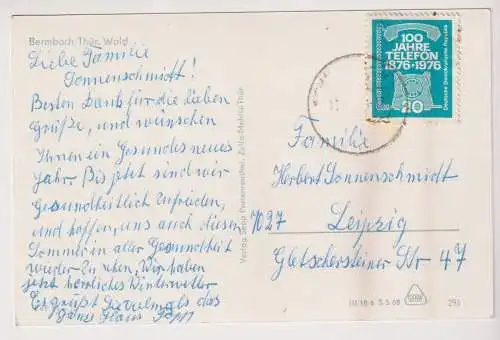 Bermbach/Thür. Wald
Liebe Familie
Sonnenschmitt!
Besten Dank für die lieben
Grüße, und wünschen
Ihnen ein Gesundes neues
Jahr. Bis jetzt sind wir
Gesundheitlich Zufrieden,
und hoffen uns auch diesen
Sommer in aller Gesundheit
wieder Zu sehen, Wir haben
jetzt herrliches Winterwetter
Es grüßt Sie vielmals das
ganze Haus
Verlag
100
JAHRE
TELEFON
1876-1976
Deutsche Demokratische Republik
20
Familie
Herbert Sonnenschmidt
7027 Leipzig
Gletschersteiner Str 47
III 18 6